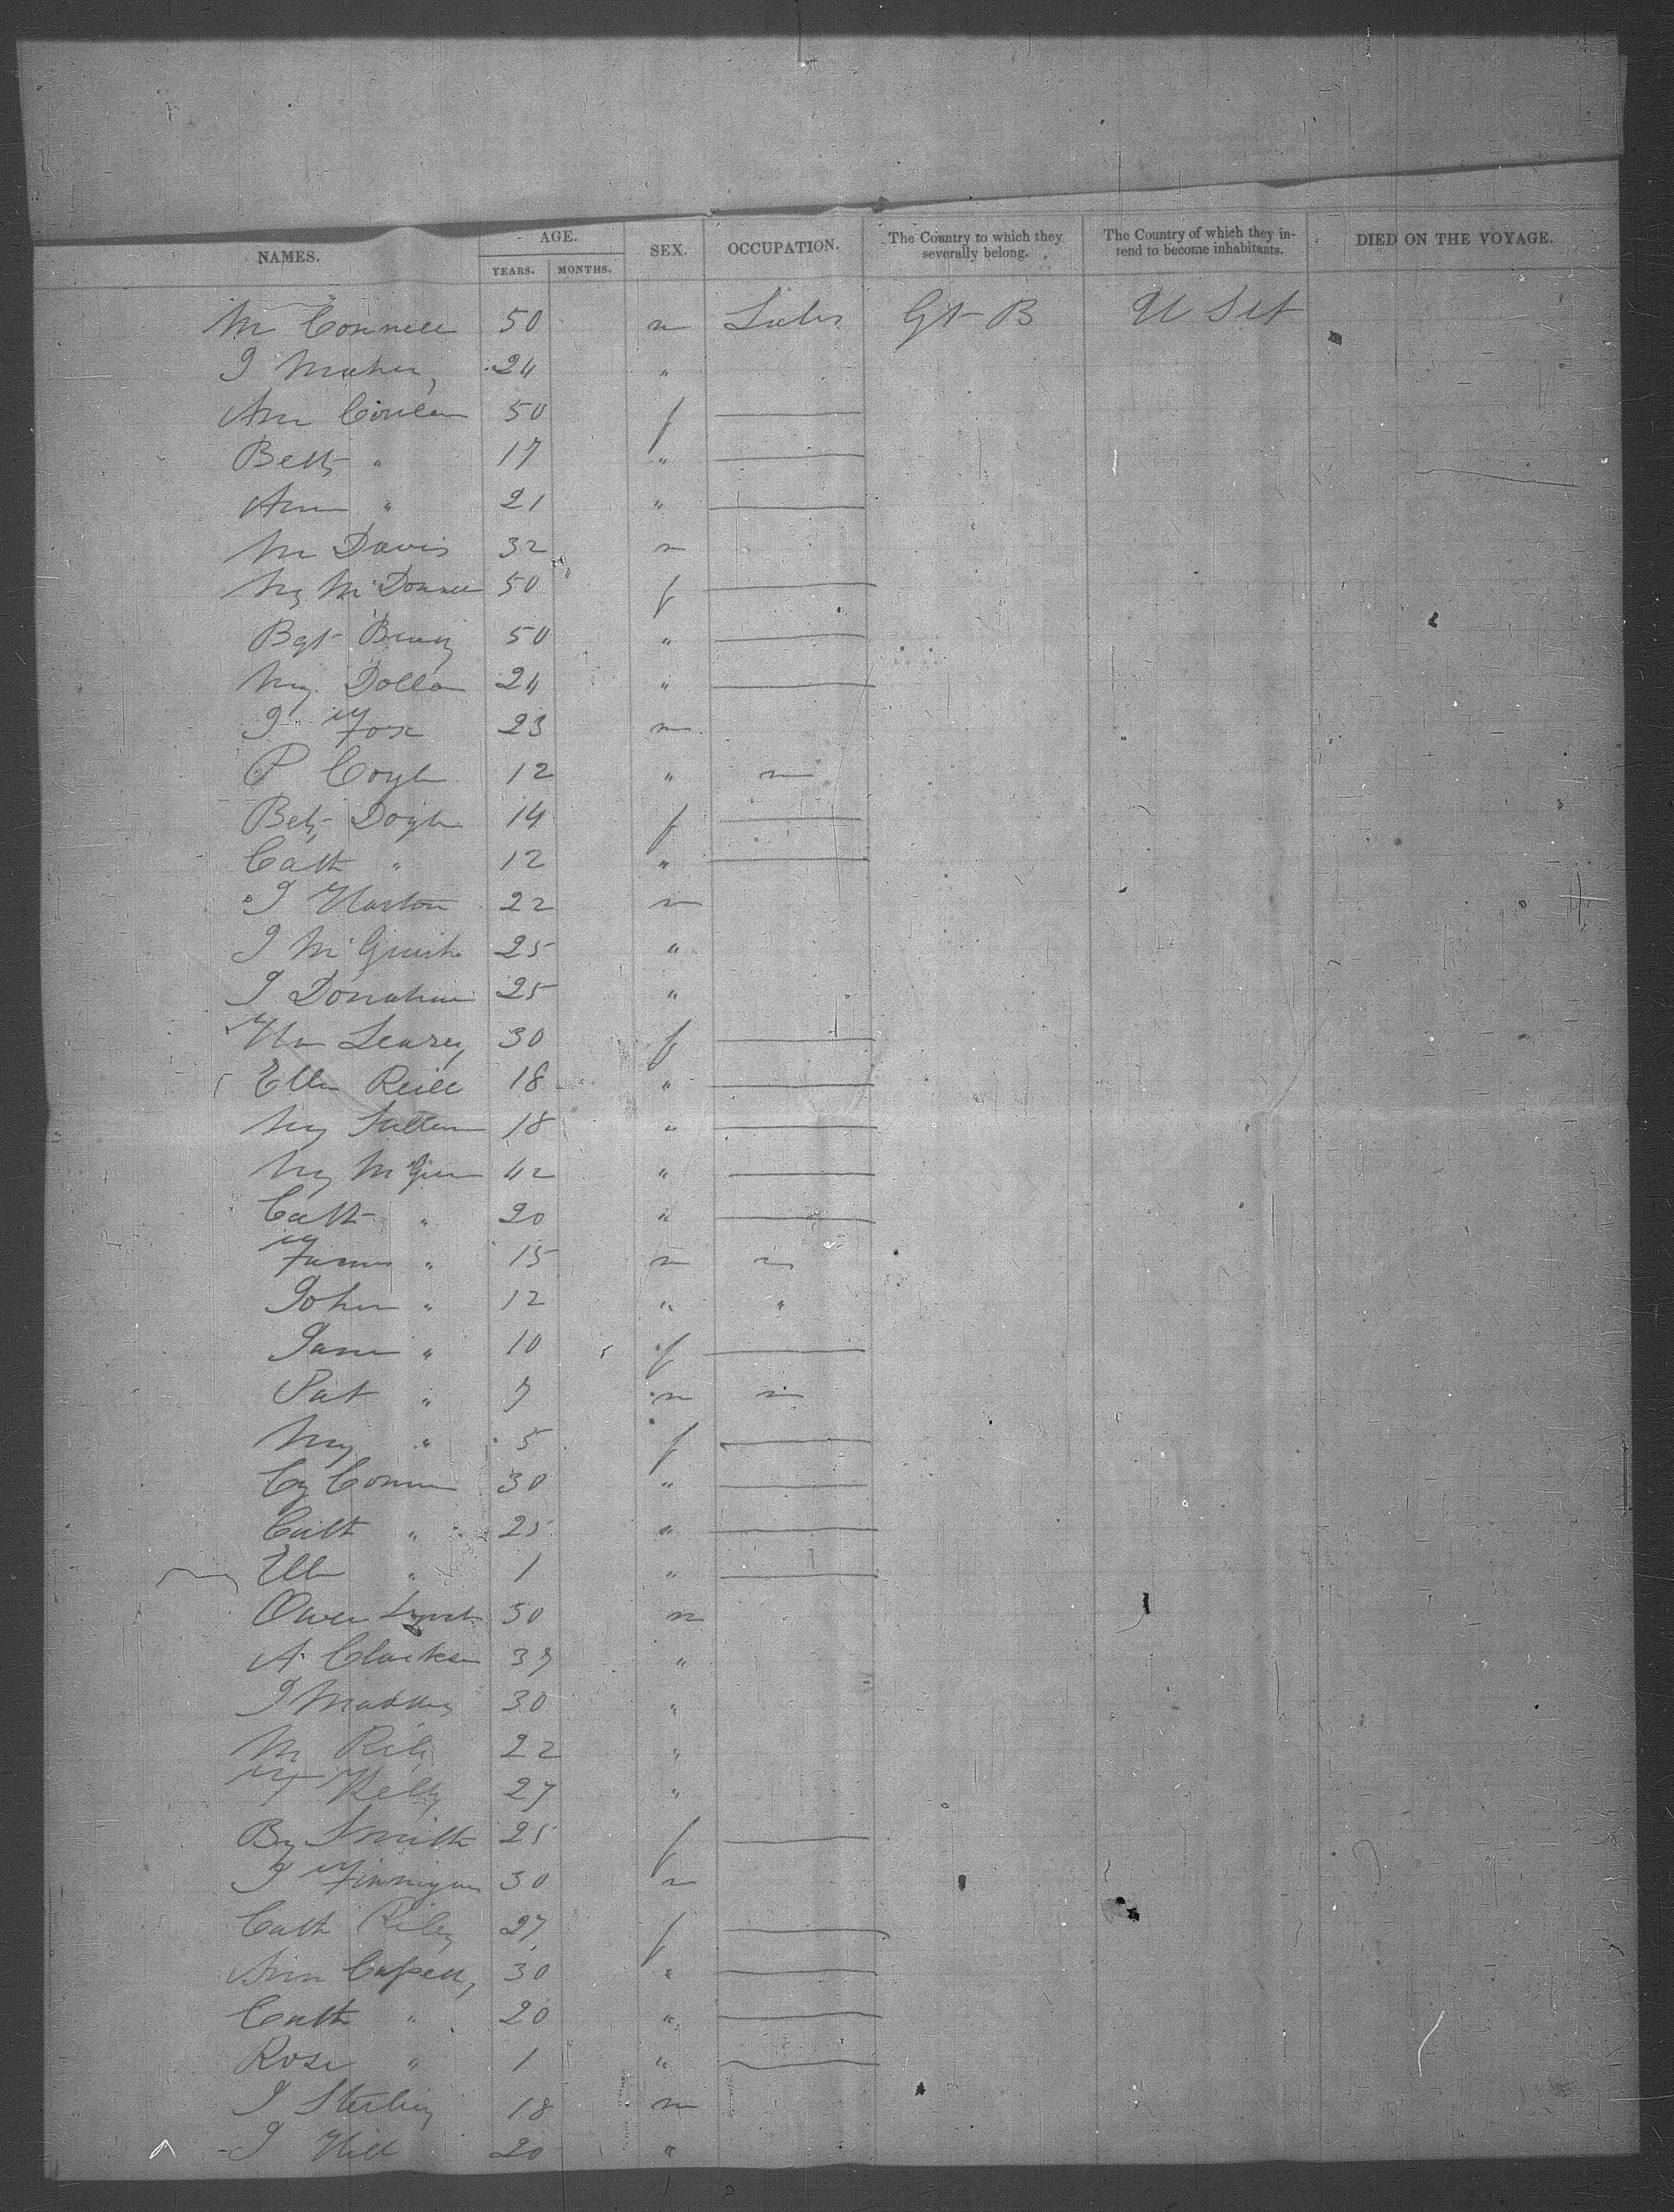 NAMES. AGE. YEARS. MONTHS. SEX. OCCUPATION. The Country to which they severally belong. The Country of which they intend to become inhabitants. DIED ON THE VOYAGE.
M Connell 50 m Gt B U St
J Maher, 24 "
Ann 50 f
Betty " 17 "
Ann " 21 "
M Davis 32 m
My McDonnell 50 f
Bgt 50 "
My Dolla 24 "
J Fox 23 m
P Coyle 12 " m
Bety Doyle 14 f
Cath " 12 "
J Harton 22 m
J McGuirk 25 "
J Donahue 25 "
Leary 30 f
Ellen Reill 18 "
My 18 "
My McGinn 42 "
Cath " 20 "
" 15 m m
John " 12 " "
Jane " 10 f
Pat " 7 m m
My " 5 f
Cy 30 "
Cath " 25 "
Ellen " 1 "
Owen Lynch 50 m
A Clarken 37 "
J Madden 30 "
M Rily 22 "
Kelly 27 "
By Smith 25 f
J Finnigan 30 m
Cath Riley 27 f
Ann 30 "
Cath " 20 "
Rose " 1 "
J Sterling 18 m
J Hill 20 "